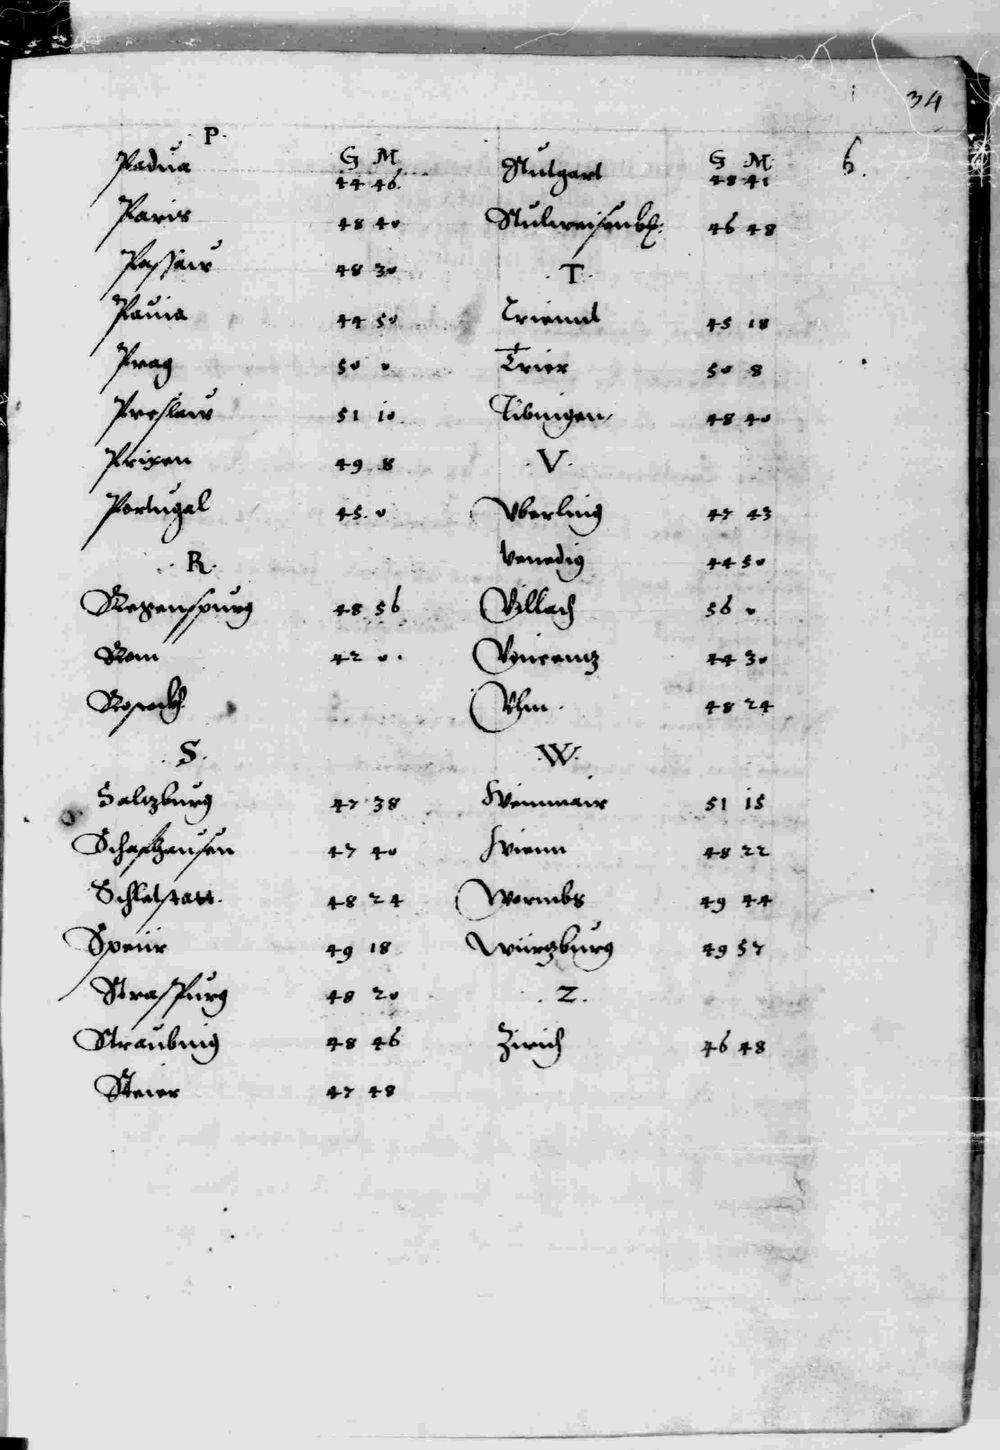 34
P.
G M
Padua 44 46
Paris 48 40
Passaw 48 30
Pauia 44 50
Prag 50 0
Preslaw 51 10
Prixen 49 8
Portugal 45 0
R.
Regenspurg 48 56
Rom 42 0
Rostockh
S.
Saltzburg 47 38
Schafhausen 47 40
Schletstatt 48 24
Speiir 49 18
Straspurg 48 20
Straubing 48 46
Steier 47 48
G M
Stutgart 48 41
46 48
T.
Trienndt 45 18
Trier 50 8
Tibingen 48 40
V.
Vberling 47 43
Venedig 44 50
Villach 56 0
Vincentz 44 30
Vlm 48 24
W.
Weinmair 51 15
Wienn 48 22
Wormbs 49 44
Würtzburg 49 57
Z.
Zirich 46 48